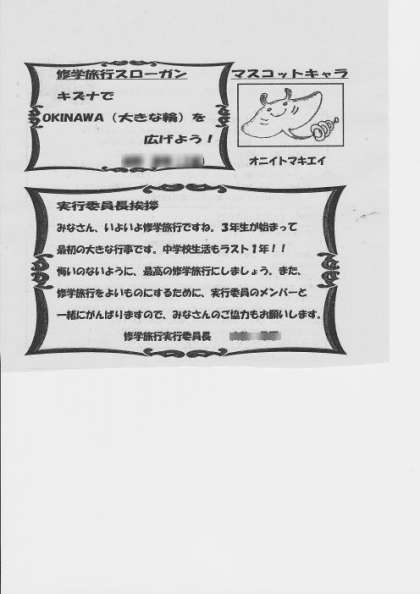 修学旅行スローガン
キズナで
OKINAWA（大きな輪）を
広げよう！
マスコットキャラ
オニイトマキエイ
実行委員長挨拶
みなさん、いよいよ修学旅行ですね。3年生が始まって
最初の大きな行事です。中学校生活もラスト1年！！
悔いのないように、最高の修学旅行にしましょう。また、
修学旅行をよいものにするために、実行委員のメンバーと
一緒にがんばりますので、みなさんのご協力もお願いします。
修学旅行実行委員長